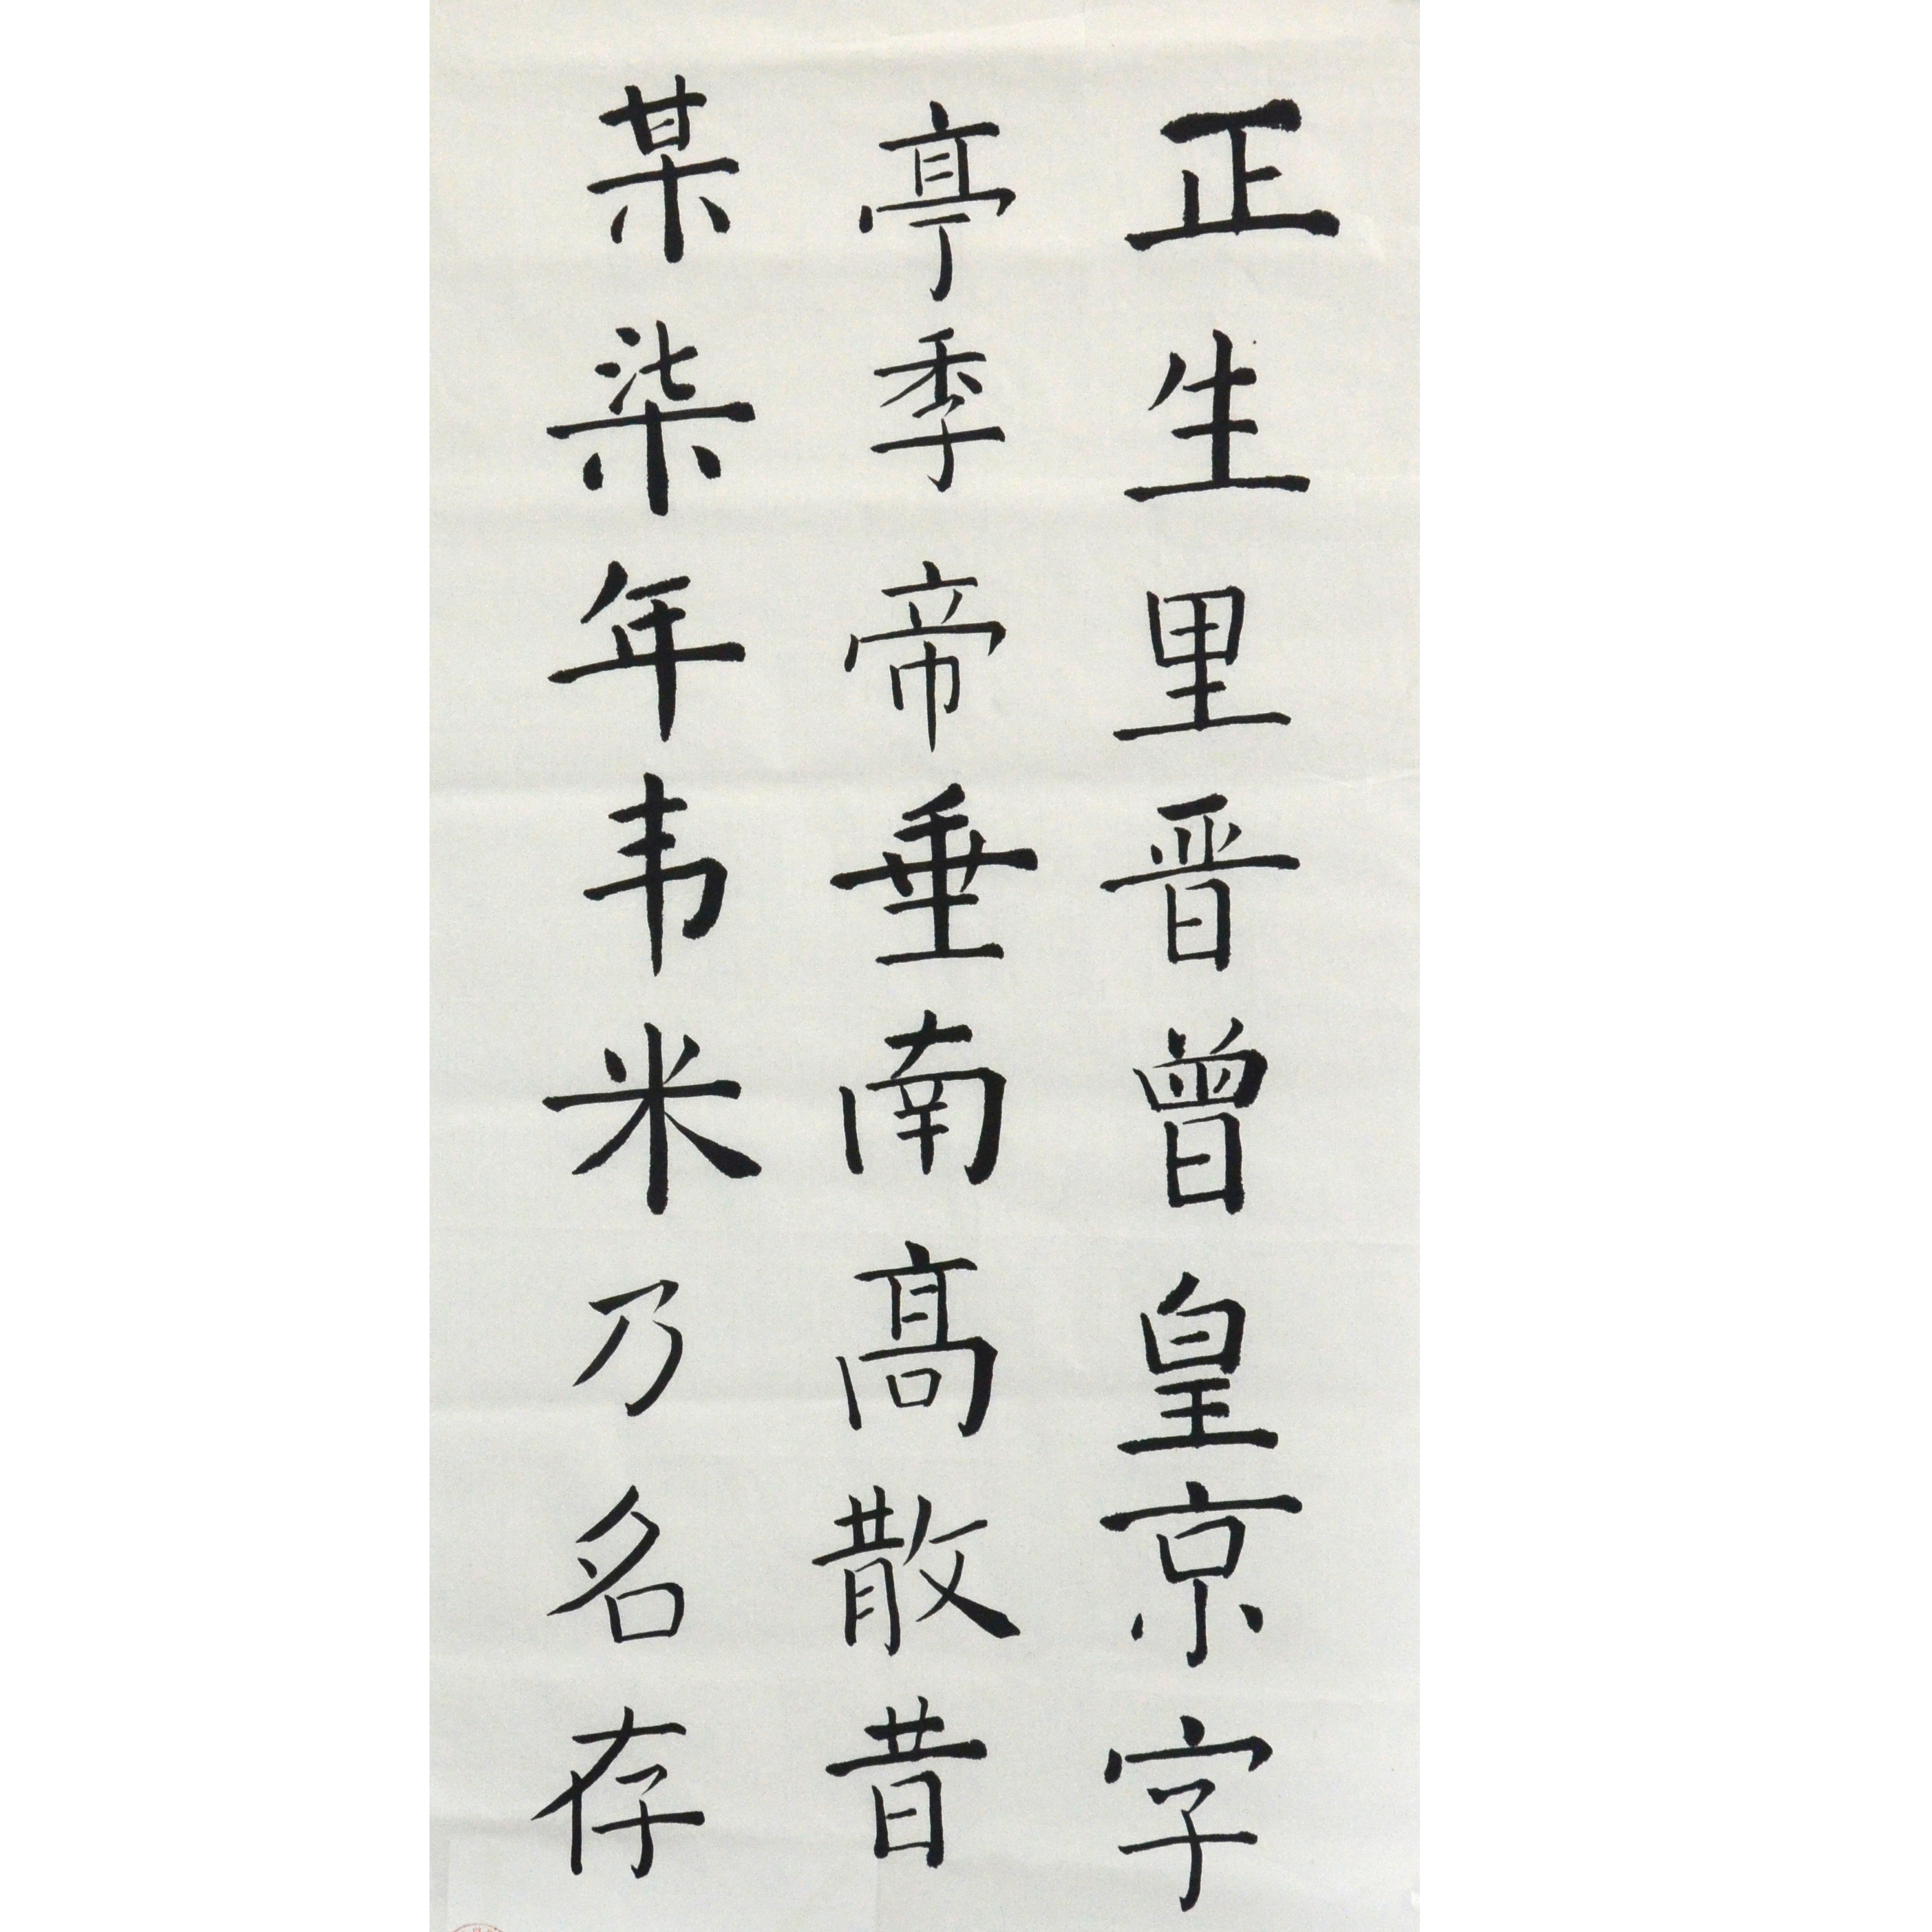 正生里晋曾皇京字
亭季帝垂南高散昔
某柒年韦米乃名存